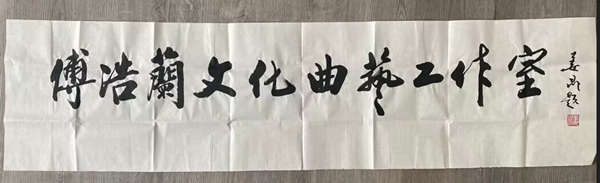 傅浩蘭文化曲藝工作室
姜昆题